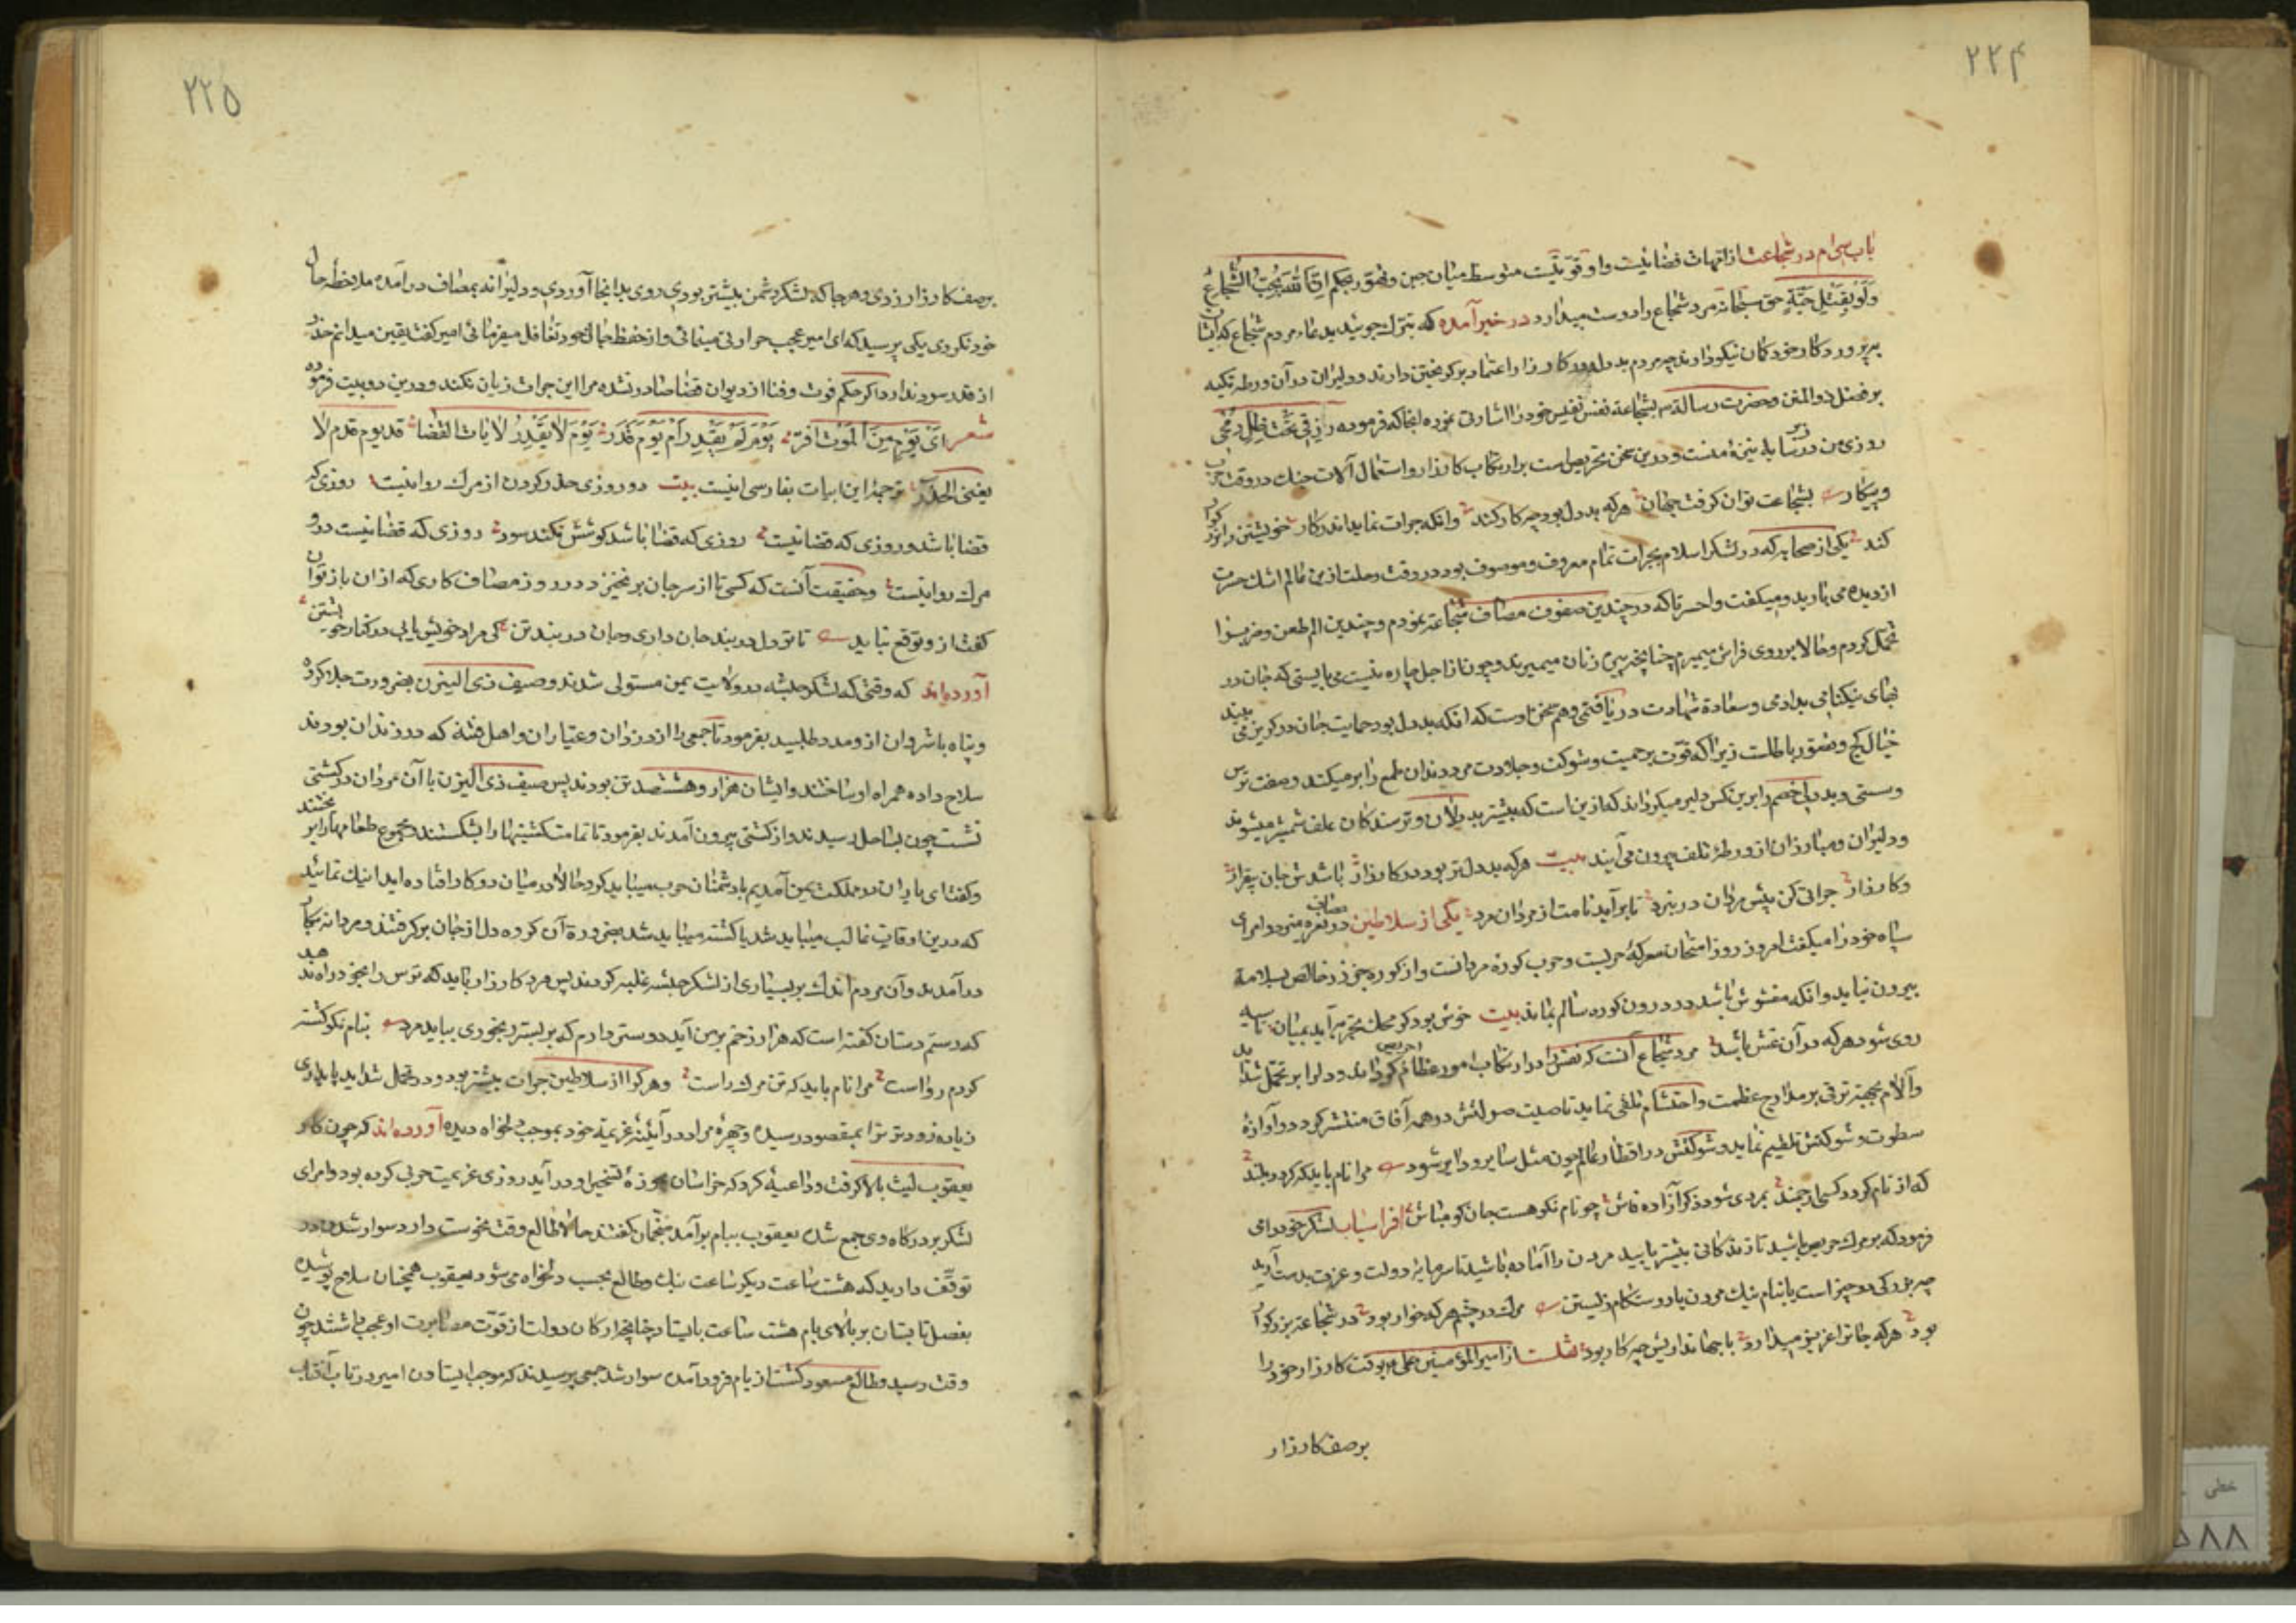 ۲۲۴
باب سی‌ام در شجاعت از امهات فضائیست و او قوتیست متوسط میان جبن و تهور بحکم ان الله یحب الشجاع
ولو بقتل حیة حق سبحانه مرد شجاع را دوست میدارد در خبر آمده که تبرک جوئید بدعاء مردم شجاع که ایشان
بپروردکار خود کمان نیکو دارند چه مردم بددل در کارزار اعتماد بر کریختن دارند و دلیران در آن ورطه تکیه
بر فضل ذوالمنن و حضرت رسالة بشجاعة نفس نفیس خود را اشارتی نموده انجا که فرموده رزقی تحت ظل رمحی
روزی من در زیر سایه نیزهٔ منست و درین سخن تحریص است بر ارتکاب کارزار و استعمال آلات جنک در وقت حرب
و پیکار بشجاعت توان کرفت جهان هرکه بددل بود چه کار کند وانکه جرات نماید اندر کار خویشتن را بزرکوار
کند یکی از صحابه که در لشکر اسلام بجرات تمام معروف و موصوف بود در وقت رحلت ازین عالم اشک حسرت
از دیده می بارید و میکفت واحسرتا که در چندین صفوف مصاف شجاعة نمودم و چندین الم طعن و ضرب را
تحمل کردم و حالا بر روی فراش میمیرم چنانچه پیره زنان میمیرند و چون از اجل چاره نیست می بایستی که جان در
بهای نیکنامی بدادمی و سعادة شهادت دریافتمی و هم سخن اوست که انکه بددل بود حمایت جان در کریز می بیند
خیال کج و تصور باطلست زیرا که قوت بر حمیت و شوکت و جلادت مرد دندان طمع را بر میکند و صفت ترس
و سستی و بددلی خصم را برین کس دلیر میکرداند که ازین است که بیشتر بددلان و ترسندکان علف شمشیر میشوند
و دلیران و مبارزان از ورطهٔ تلف بیرون می آیند بیت هرکه بددل تر بود در کارزار باشدش جان بیقرار
و کارزار جراتی کن پیش مردان در نبرد تا برآید نامت از مردان مرد یکی از سلاطین در معرض مصاف امرای
سپاه خود را میکفت امروز روز امتحان معرکهٔ حربست و حرب کورهٔ مردانست و از کوره جز زر خالص بسلامة
بیرون نیاید و انکه مغشوش باشد در درون کوره سالم نماند بیت خوش بود کر محک تجربه آید بمیان تا سیه
روی شود هر که در آن غش باشد مرد شجاع آنست که نفس را در ارتکاب امور عظام حریص کرداند و دل را بر تحمل شداید
و آلام بجهة ترقی بر مدارج عظمت و احتشام تلقی نماید تا صیت صولتش در همه آفاق منتشر کردد و آوازهٔ
سطوت و شوکتش در اقطار عالم چون مثل سایر و دایر شود مرا نام باید که کردد بلند
که از نام کردد کسی ارجمند بمردی شود ذکر آزاده فاش چو نام نکو هست جان کو مباش افراسیاب لشکر خود را می
فرمود که بر مرک حریص باشید تا زندکانی بیشتر یابید مردن را آماده باشید تا سرمایهٔ دولت و عزت بدست آرید
چه بزرکی دو چیز است یا بنام نیک مردن یا دوستکام زیستن مرک در چشم هر که خوار بود در شجاعة بزرکوار
بود هرکه جانرا عزیز میدارد با جهانداریش چه کار بود نقلست از امیرالمؤمنین علی که بوقت کارزار خود را
بر صف کارزار
۲۲۵
بر صف کارزار زدی و هر جا که لشکر دشمن بیشتر بودی روی بدانجا آوردی و دلیرانه بمصاف در آمده ملاحظه جان
خود نکردی یکی پرسید که ای امیر عجب جراتی مینمائی و از حفظ جان خود تغافل میفرمائی امیر کفت یقین میدانم حذر
از قدر سود ندارد اکر حکم فوت و فنا از دیوان قضا صادر نشده مرا این جرات زیان نکند و درین دو بیت فرموده
شعر ای یومی من الموت افر یوم لم یقدر ام یوم قدر یوم لا یقدر لا یات القضا قد یوم قدم لا
یغنی الحذر ترجمهٔ این ابیات بفارسی اینست بیت دو روزی حذر کردن از مرک روانیست روزی که
قضا باشد و روزی که قضا نیست روزی که قضا باشد کوشش نکند سود روزی که قضا نیست درو
مرک روا نیست و حقیقت آنست که کسی تا از سر جان بر نخیزد در روز مصاف کاری که ازان باز توان
کفت ازو توقع نباید تا تو دل در بند جان داری و جان در بند تن کی مراد خویش یابی در کنار خویشتن
آورده‌اند که وقتی که لشکر حبشه در ولایت یمن مستولی شدند و صیف ذی الیزن بضرورت جلا کرد
و پناه باشروان ازو مدد طلبید بفرمود تا جمعی را از دزدان و عیاران و اهل فتنه که در زندان بودند
سلاح داده همراه او ساختند و ایشان هزار و هشتصد تن بودند پس صیف ذی الیزن با آن مردان در کشتی
نشست چون بساحل رسیدند و از کشتی بیرون آمدند بفرمود تا تمامت کشتیها را بشکستند و مجموع طعامها را بریختند
و کفت ای یاران در مملکت یمن آمدیم با دشمنان حرب میباید کرد حالا در میان دو کار افتاده اید اینک نمائید
که درین اوقات غالب میباید شد یا کشته میباید شد بضرورة آن کروه دل از جان بر کرفتند و مردانه بکار
در آمدند و آن مردم اندک بر بسیاری از لشکر حبشه غلبه کردند پس مرد کارزار باید که ترس را بخود راه ندهد
که رستم دستان کفته است که هزار زخم بر من آید دوستر دارم که بر بستر رنجوری بباید مرد بنام نکو کشته
کردم رواست مرا نام باید که تن مرک راست و هر کرا از سلاطین جرات بیشتر بود و در تحمل شداید پایداری
زیاده زودتر ترا بمقصود رسیده و چهرهٔ مراد در آیئنهٔ عزیمة خود بموجب دلخواه دیده آورده‌اند که چون کار
یعقوب لیث بالا کرفت و داعیهٔ کرد که خراسان بحوزهٔ تسخیر او در آید روزی عزیمت حربی کرده بود و امرای
لشکر بر درکاه وی جمع شده یعقوب ببام بر آمد منجمان کفتند حالا طالع وقت نحوست دارد سوار شدن را
توقف دارید که هشت ساعت دیکر ساعت نیک و طالع بحسب دلخواه می شود یعقوب همچنان سلاح پوشیده
بفصل تابستان بر بالای بام هشت ساعت بایستاد چنانچه ارکان دولت از قوت مصابرت او عجب داشتند چون
وقت رسید و طالع مسعود کشت از بام فرود آمده سوار شد جمعی پرسیدند که موجب ایستادن امیر در تاب آفتاب
خطی
۵۸۸